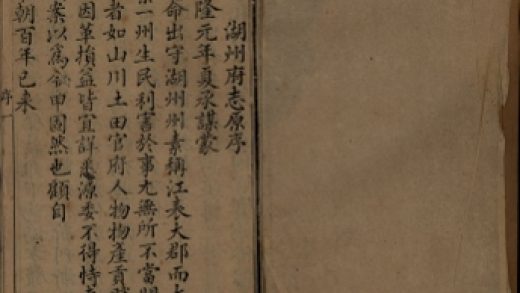 湖州府志原序
隆元年夏承謀蒙
命出守湖州州素稱江表大郡而
一州生民利害於事尤無所不當
者如山川土田官府人物物產貢
因革損益皆宜詳悉源委不得恃
案以為
甲固然也顧自
朝百年已来
序一